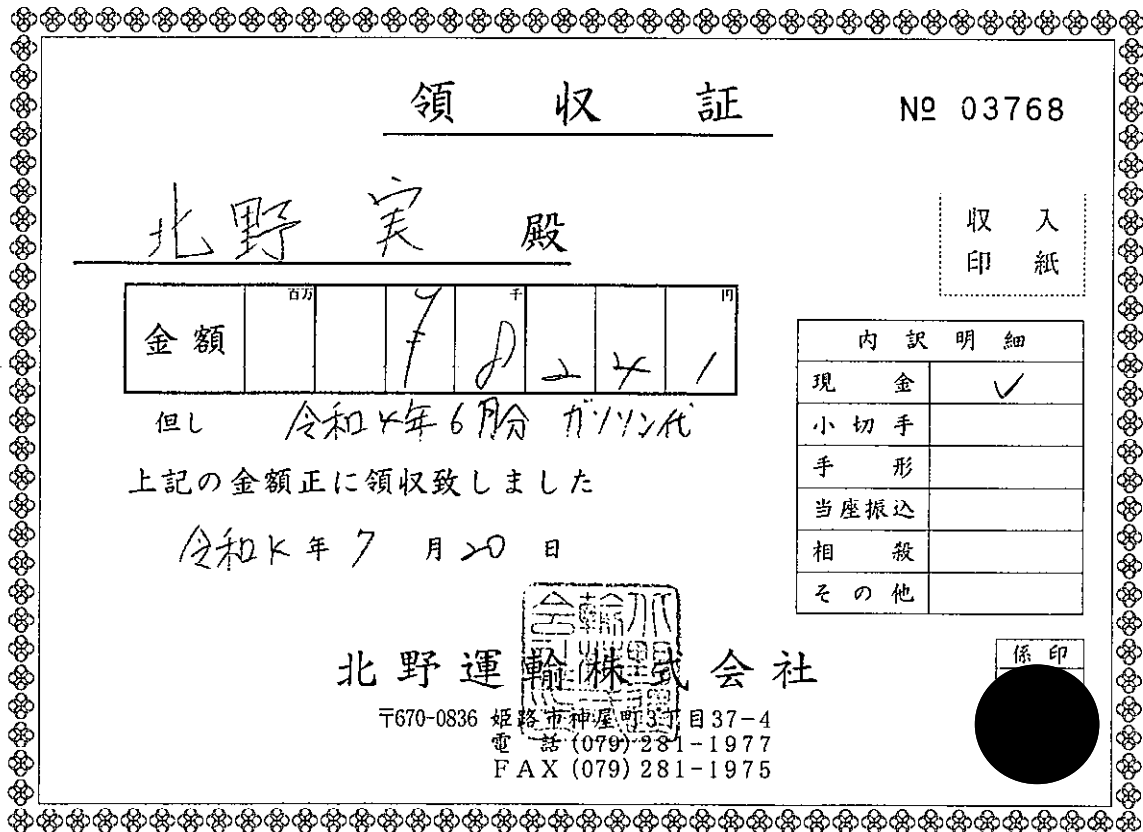 領収証
№ 03768
北野 実 殿
収入
印紙
金額 百万 千 円
¥8241
但し 令和4年6月分 ガソリン代
上記の金額正に領収致しました
令和4年7月20日
内訳明細
現金 ✓
小切手
手形
当座振込
相殺
その他
北野運輸株式会社
〒670-0836 姫路市神屋町3丁目37-4
電話 (079) 281-1977
FAX (079) 281-1975
係印